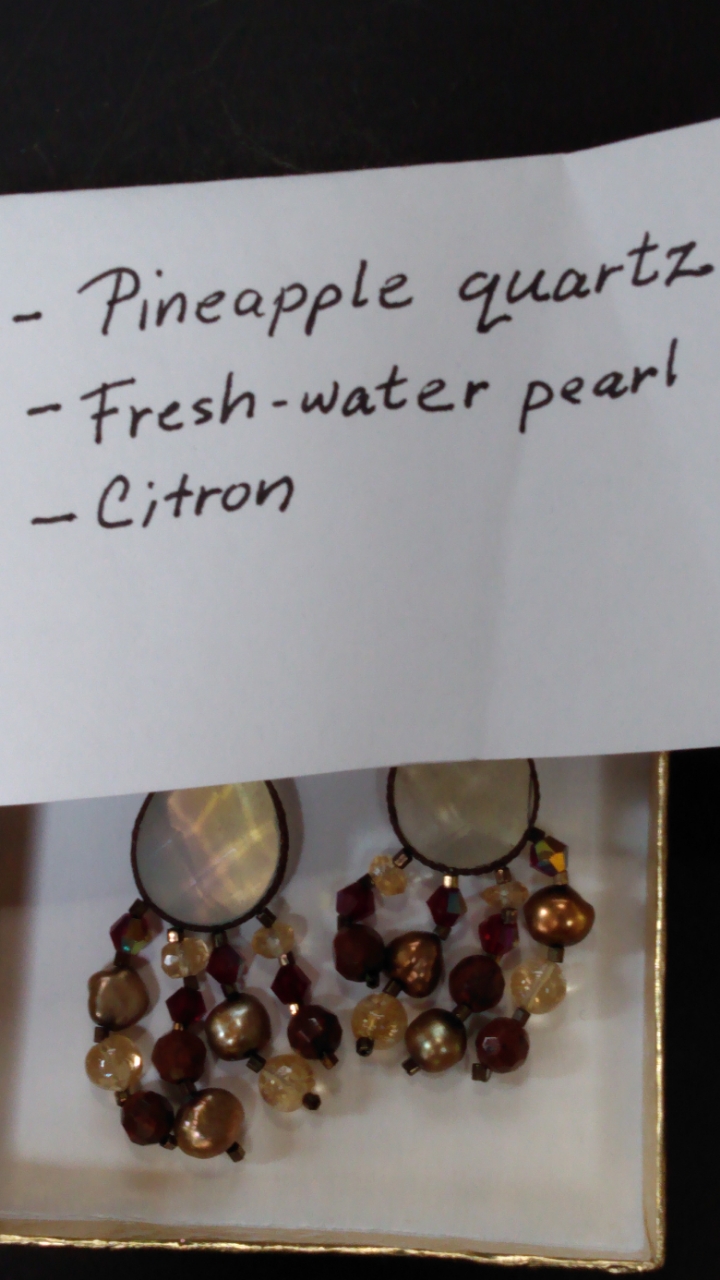 - Pineapple quartz
- Fresh-water pearl
- Citron